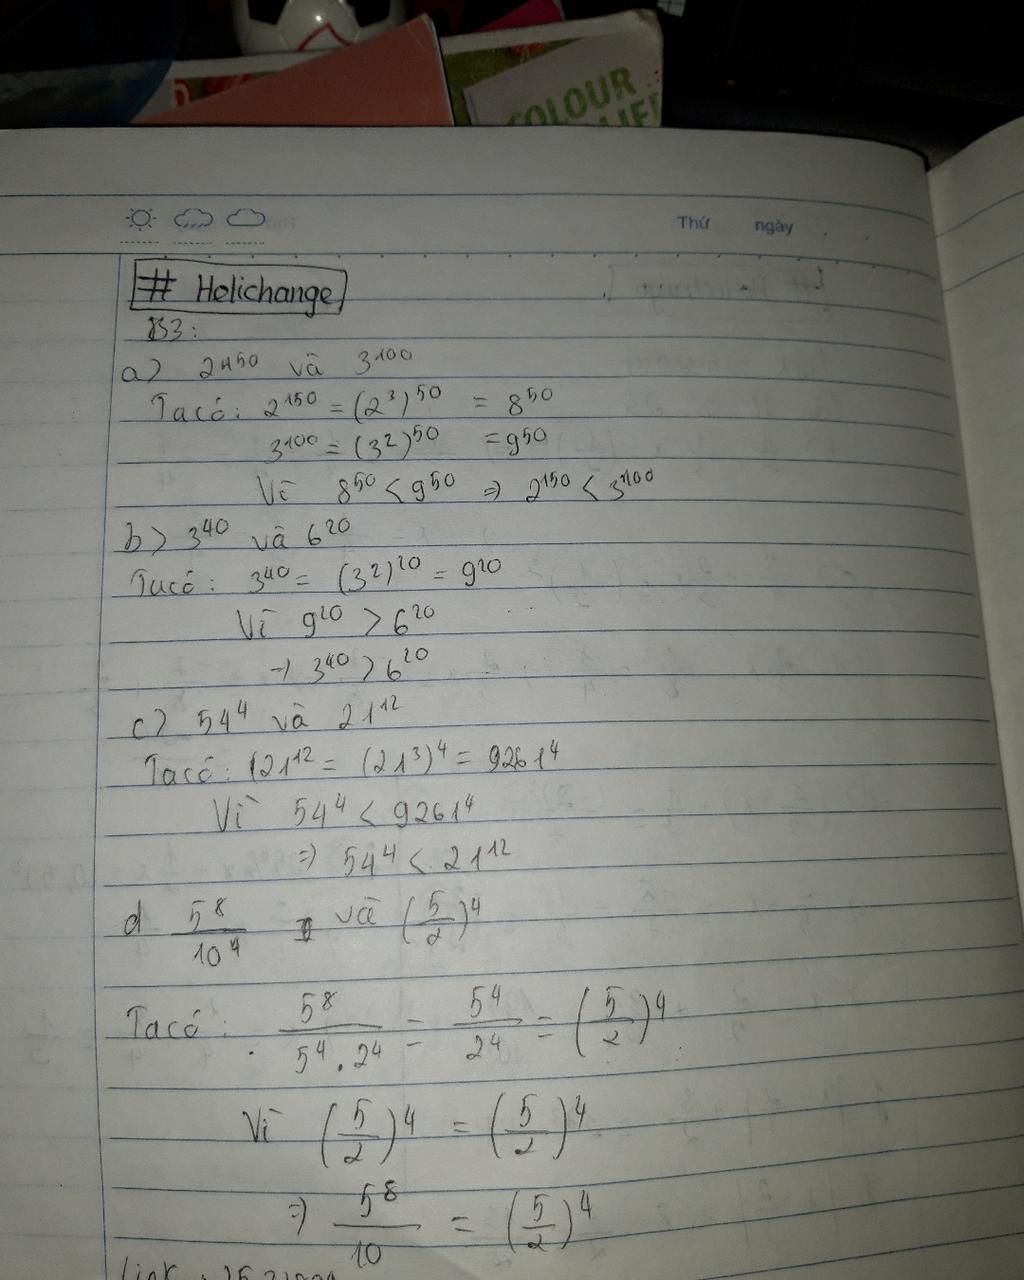 COLOUR
Thứ ngày
# Helichange
B3:
a) 2¹⁵⁰ và 3¹⁰⁰
Ta có: 2¹⁵⁰ = (2³)⁵⁰ = 8⁵⁰
3¹⁰⁰ = (3²)⁵⁰ = 9⁵⁰
Vì 8⁵⁰ < 9⁵⁰ => 2¹⁵⁰ < 3¹⁰⁰
b) 3⁴⁰ và 6²⁰
Ta có: 3⁴⁰ = (3²)²⁰ = 9²⁰
Vì 9²⁰ > 6²⁰
=> 3⁴⁰ > 6²⁰
c) 54⁴ và 21¹²
Ta có: 21¹² = (21³)⁴ = 9261⁴
Vì 54⁴ < 9261⁴
=> 54⁴ < 21¹²
d 5⁸/10⁴ và (5/2)⁴
Ta có: 5⁸/5⁴.2⁴ = 5⁴/2⁴ = (5/2)⁴
Vì (5/2)⁴ = (5/2)⁴
=> 5⁸/10 = (5/2)⁴